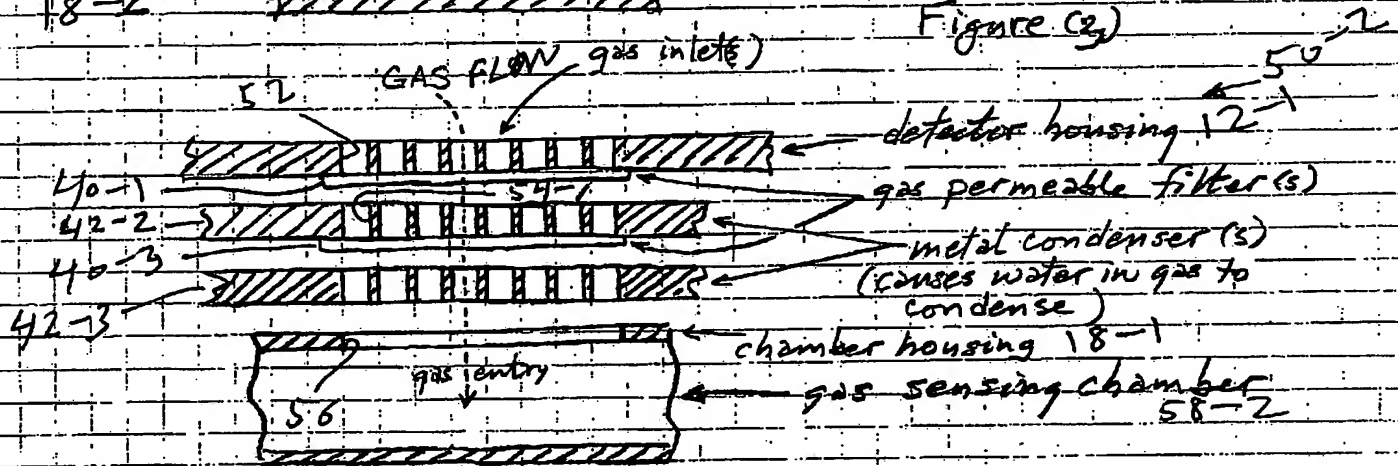 18-2
Figure (2)
50-2
GAS FLOW
gas inlet(s)
52
detector housing 12-1
40-1
54-1
gas permeable filter(s)
42-2
metal condenser(s)
40-3
(causes water in gas to
condense)
42-3
chamber housing 18-1
gas entry
gas sensing chamber
56
58-2